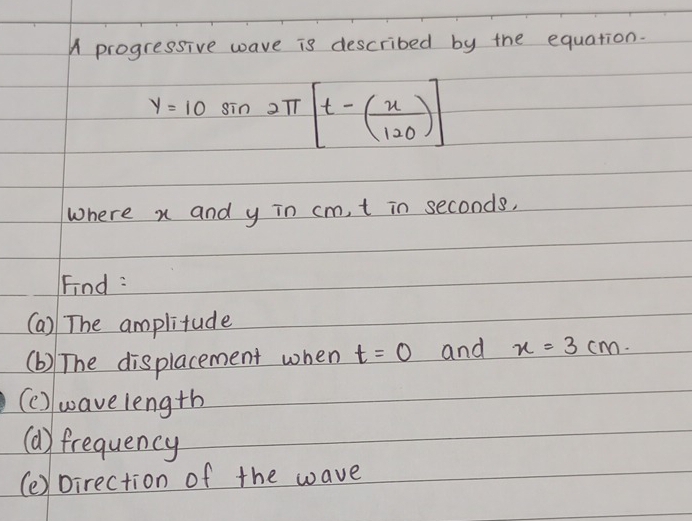 A progressive wave is described by the equation.
Y = 10 sin 2π [t - (x/120)]
Where x and y in cm, t in seconds.
Find :
(a) The amplitude
(b) The displacement when t = 0 and x = 3 cm.
(c) wavelength
(d) frequency
(e) Direction of the wave